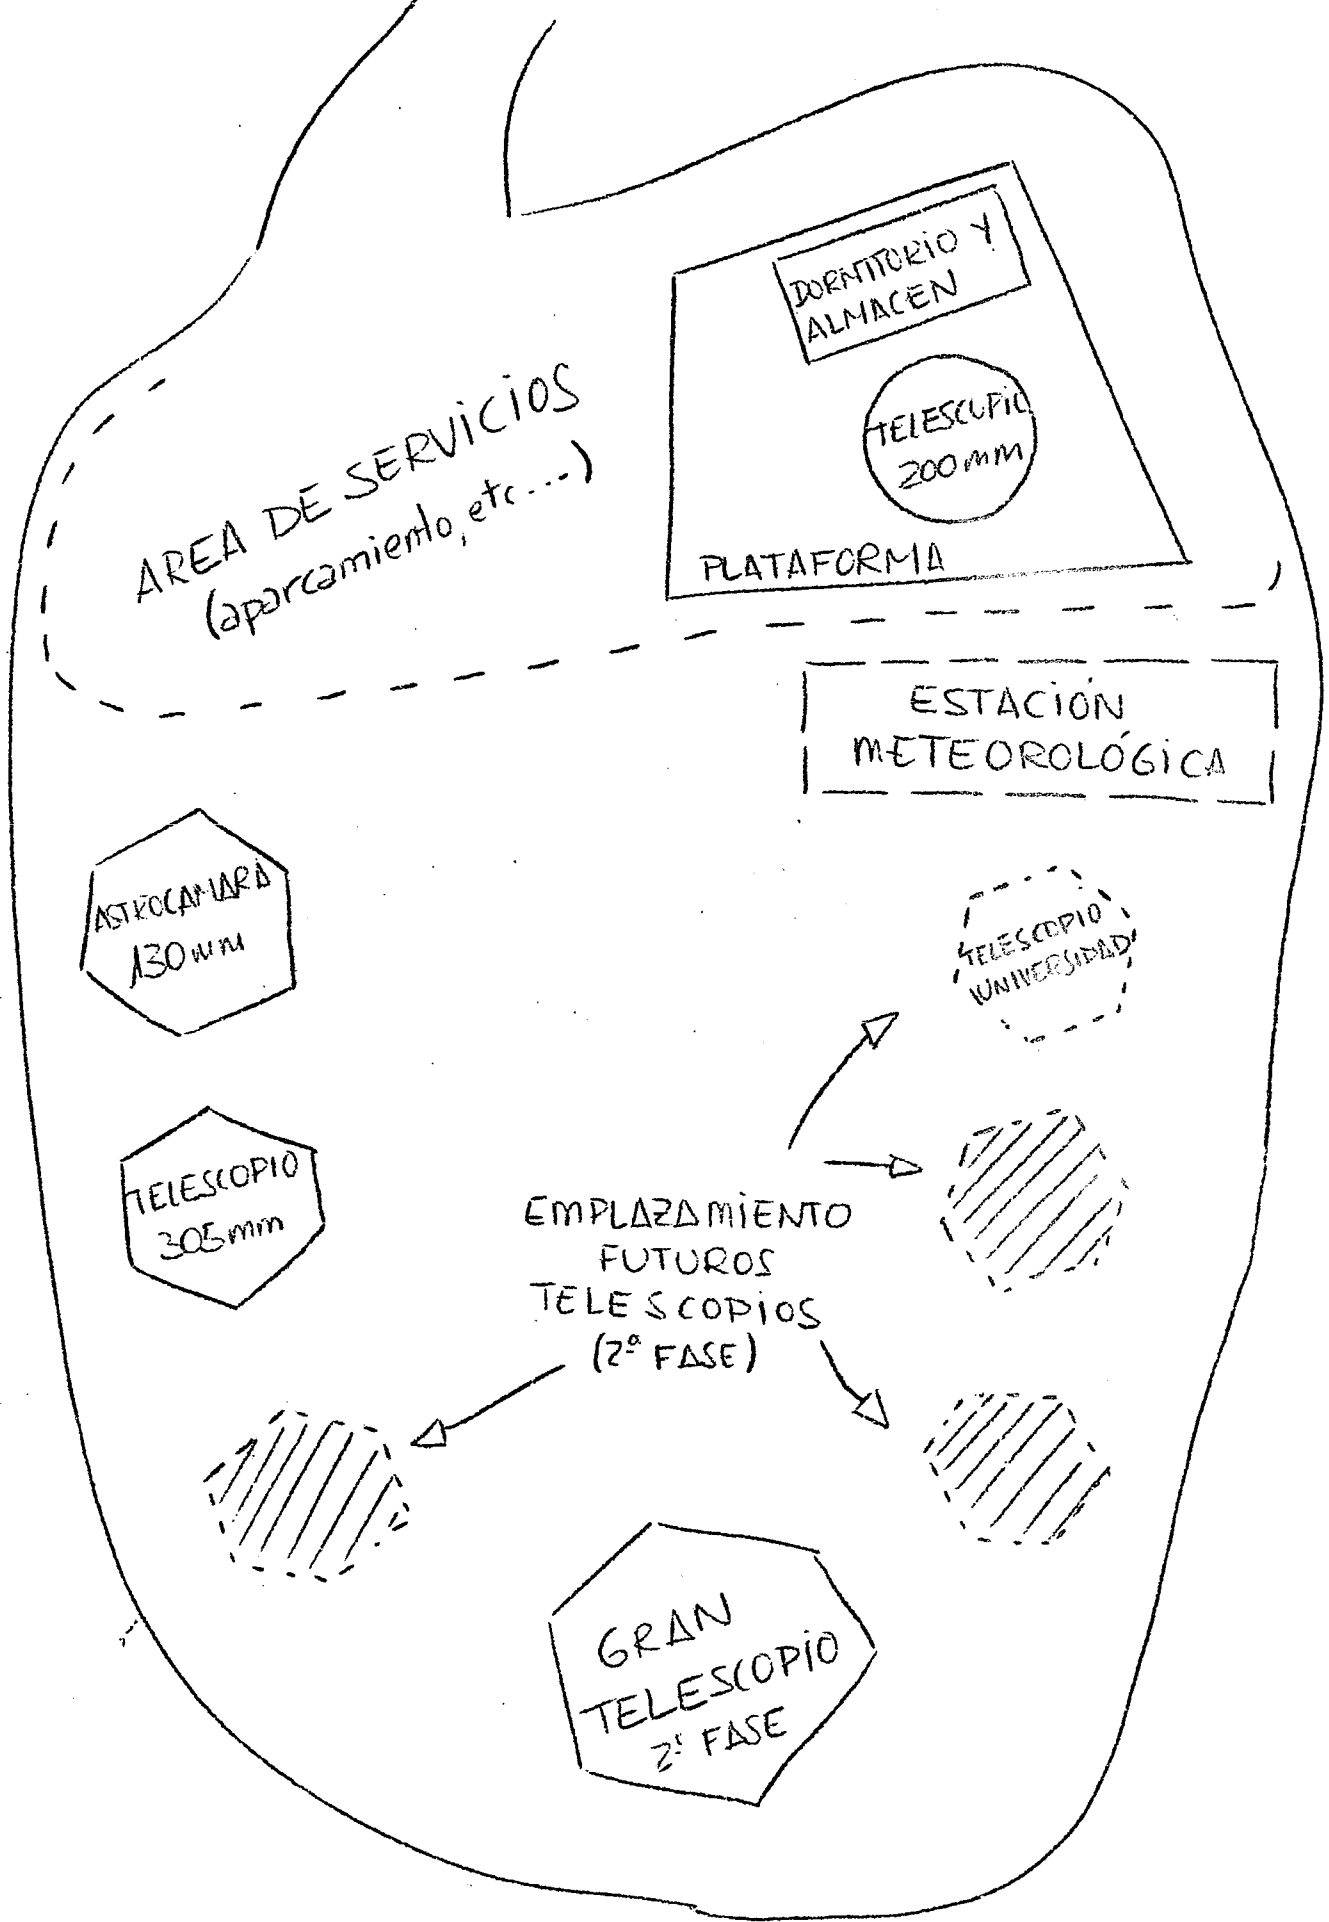 DORMITORIO Y
ALMACEN
TELESCOPIO
200mm
PLATAFORMA
AREA DE SERVICIOS
(aparcamiento, etc...)
ESTACIÓN
METEOROLÓGICA
ASTROCAMARA
130mm
TELESCOPIO
UNIVERSIDAD
TELESCOPIO
305mm
EMPLAZAMIENTO
FUTUROS
TELESCOPIOS
(2ª FASE)
GRAN
TELESCOPIO
2ª FASE